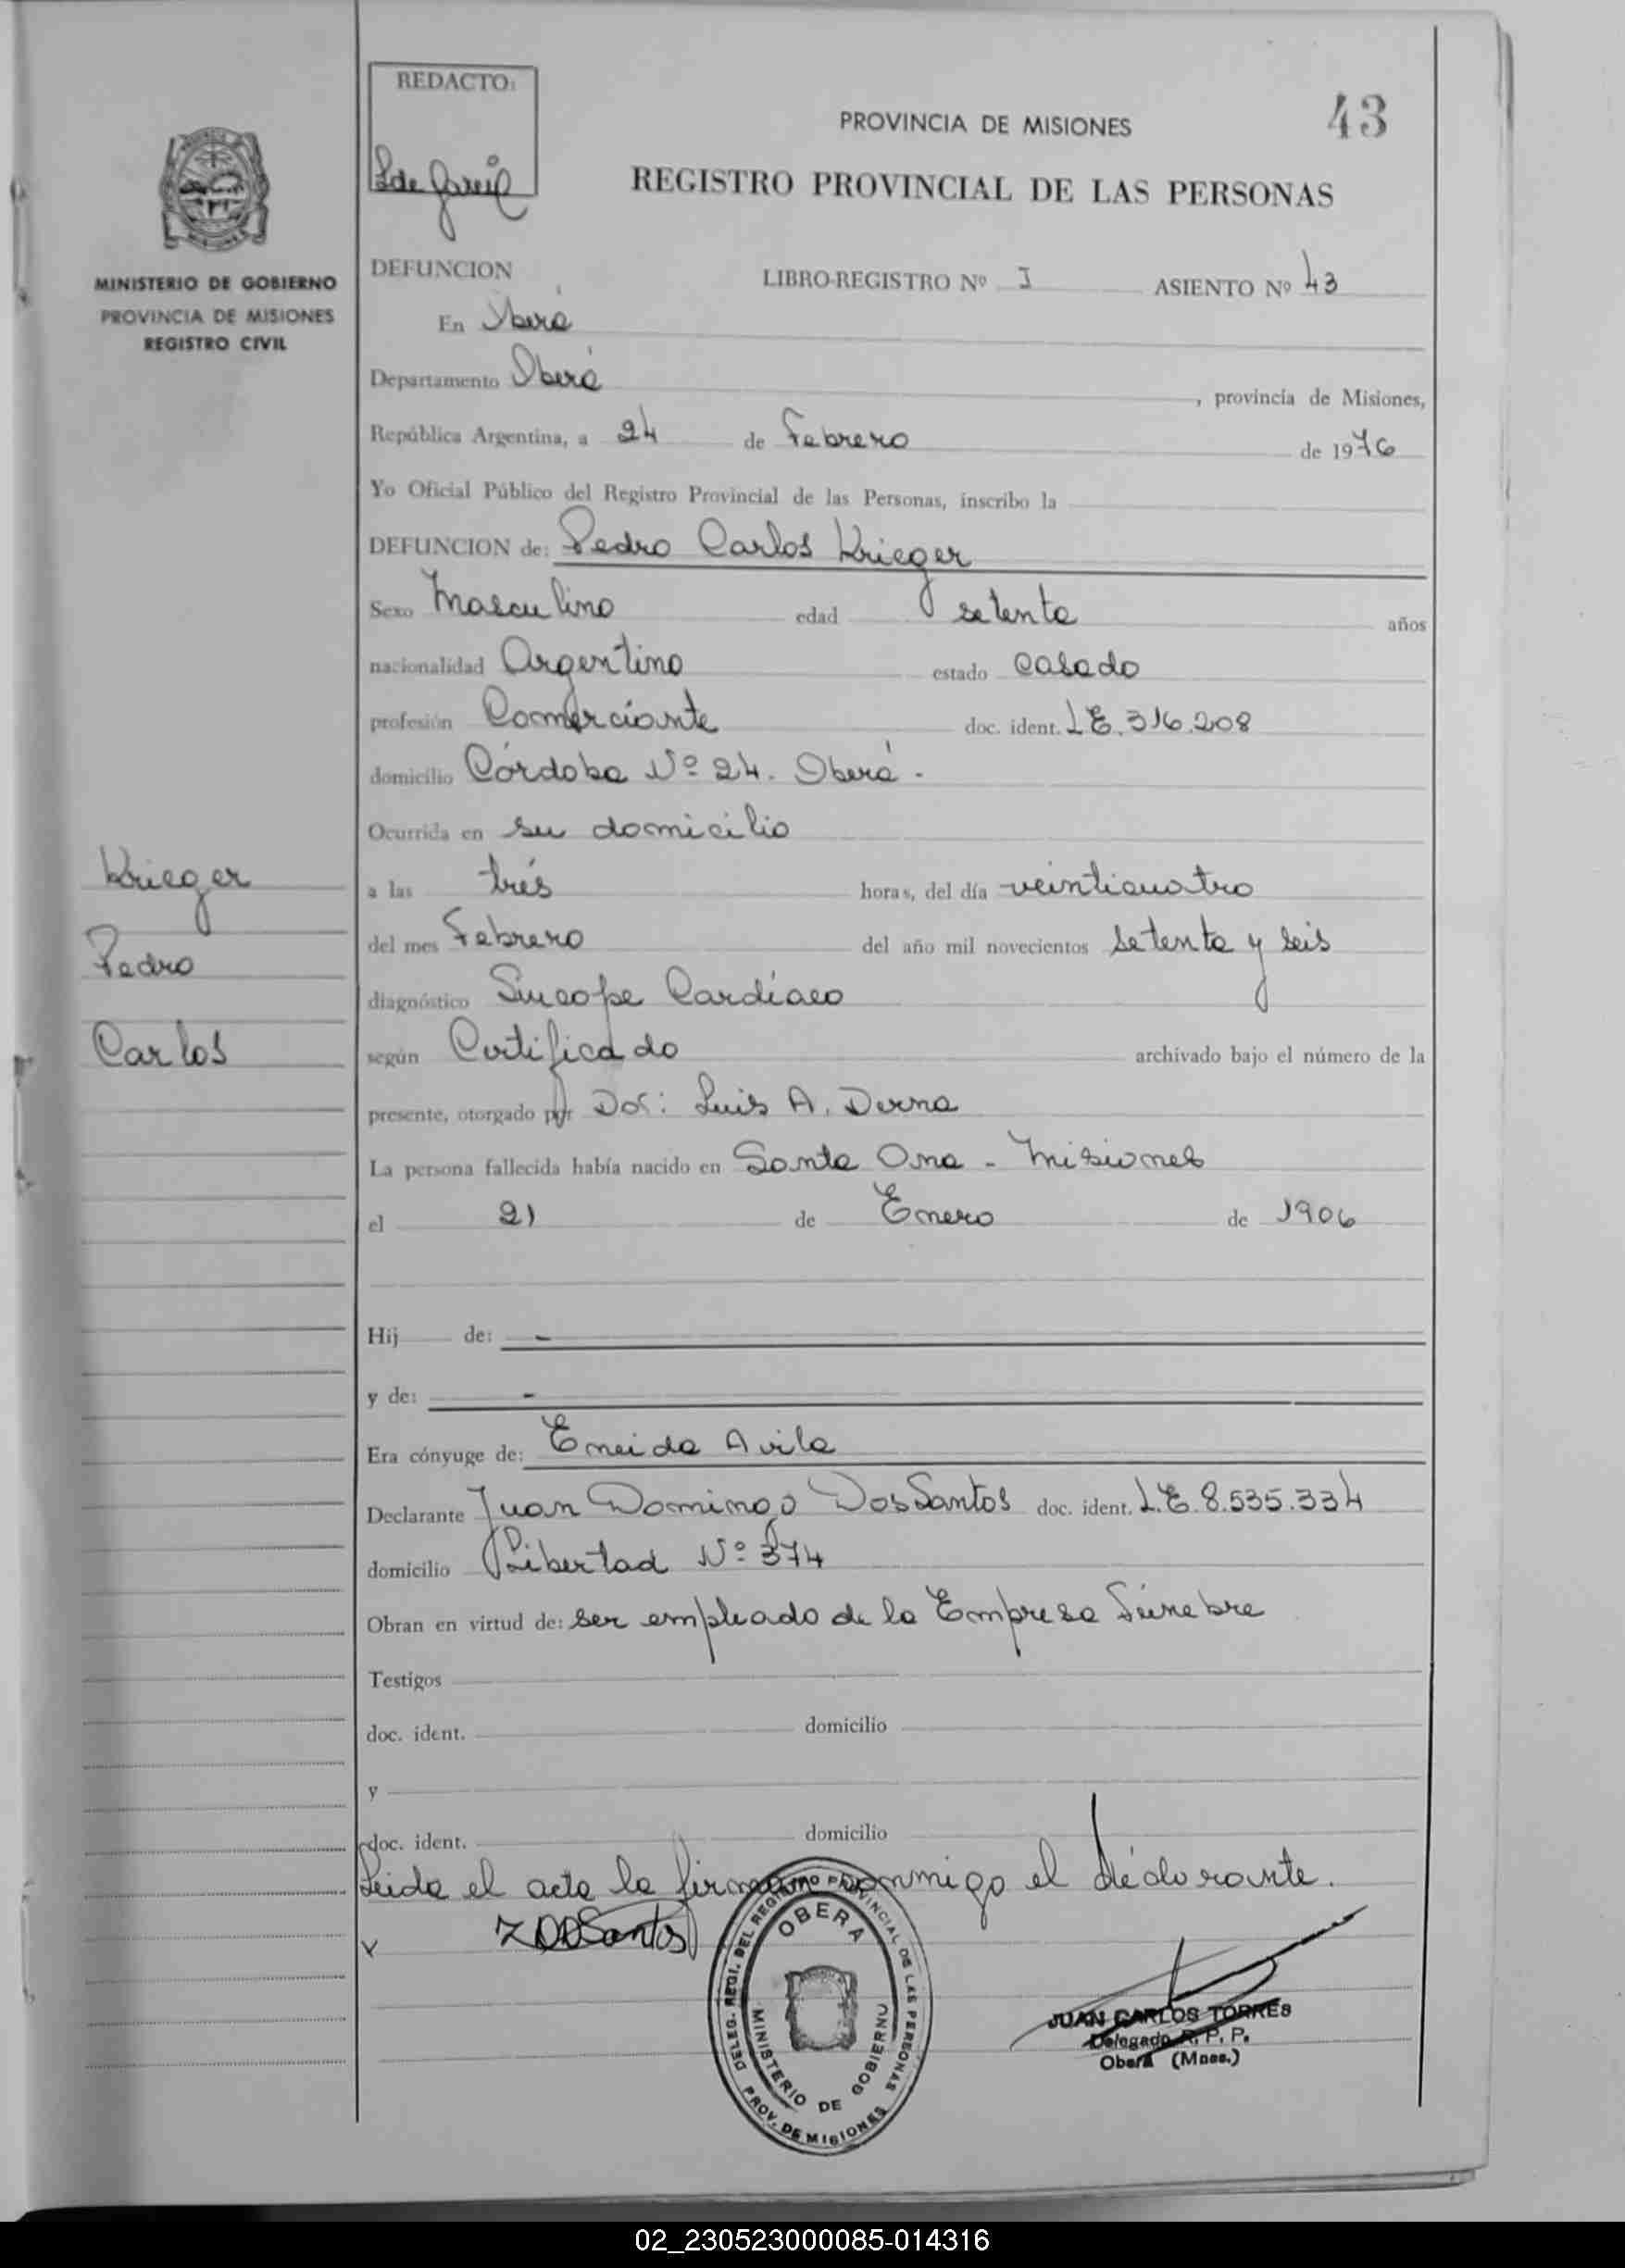 REDACTO:
43
PROVINCIA DE MISIONES
REGISTRO PROVINCIAL DE LAS PERSONAS
MINISTERIO DE GOBIERNO
PROVINCIA DE MISIONES
REGISTRO CIVIL
DEFUNCION LIBRO-REGISTRO Nº I ASIENTO Nº 43
En Oberá
Departamento Oberá, provincia de Misiones,
República Argentina, a 24 de Febrero de 1976
Yo Oficial Público del Registro Provincial de las Personas, inscribo la
DEFUNCION de: Pedro Carlos Krieger
Sexo Masculino edad setenta años
nacionalidad Argentino estado Casado
profesión Comerciante doc. ident. LE.316.208
domicilio Córdoba Nº 24. Oberá.
Ocurrida en su domicilio
Krieger
Pedro
Carlos
a las trés horas, del día veinticuatro
del mes Febrero del año mil novecientos setenta y seis
diagnóstico Sincope Cardíaco
según Certificado archivado bajo el número de la
presente, otorgado por Dor: Luis A. Derna
La persona fallecida había nacido en Santa Ana - Misiones
el 21 de Enero de 1906
Hij de: -
y de: -
Era cónyuge de: Eneida Avila
Declarante Juan Domingo DosSantos doc. ident. L.E. 8.535.334
domicilio Libertad Nº 374
Obran en virtud de: ser empleado de la Empresa Fúnebre
Testigos
doc. ident. domicilio
y
doc. ident. domicilio
Leida el acta la firma conmigo el declarante.
DELEG. REGI. DEL REGISTRO PROVINCIAL DE LAS PERSONAS
OBERA
MINISTERIO DE GOBIERNO
PROV. DE MISIONES
JUAN CARLOS TORRES
Delegado R. P. P.
Oberá (Mnes.)
02_230523000085-014316